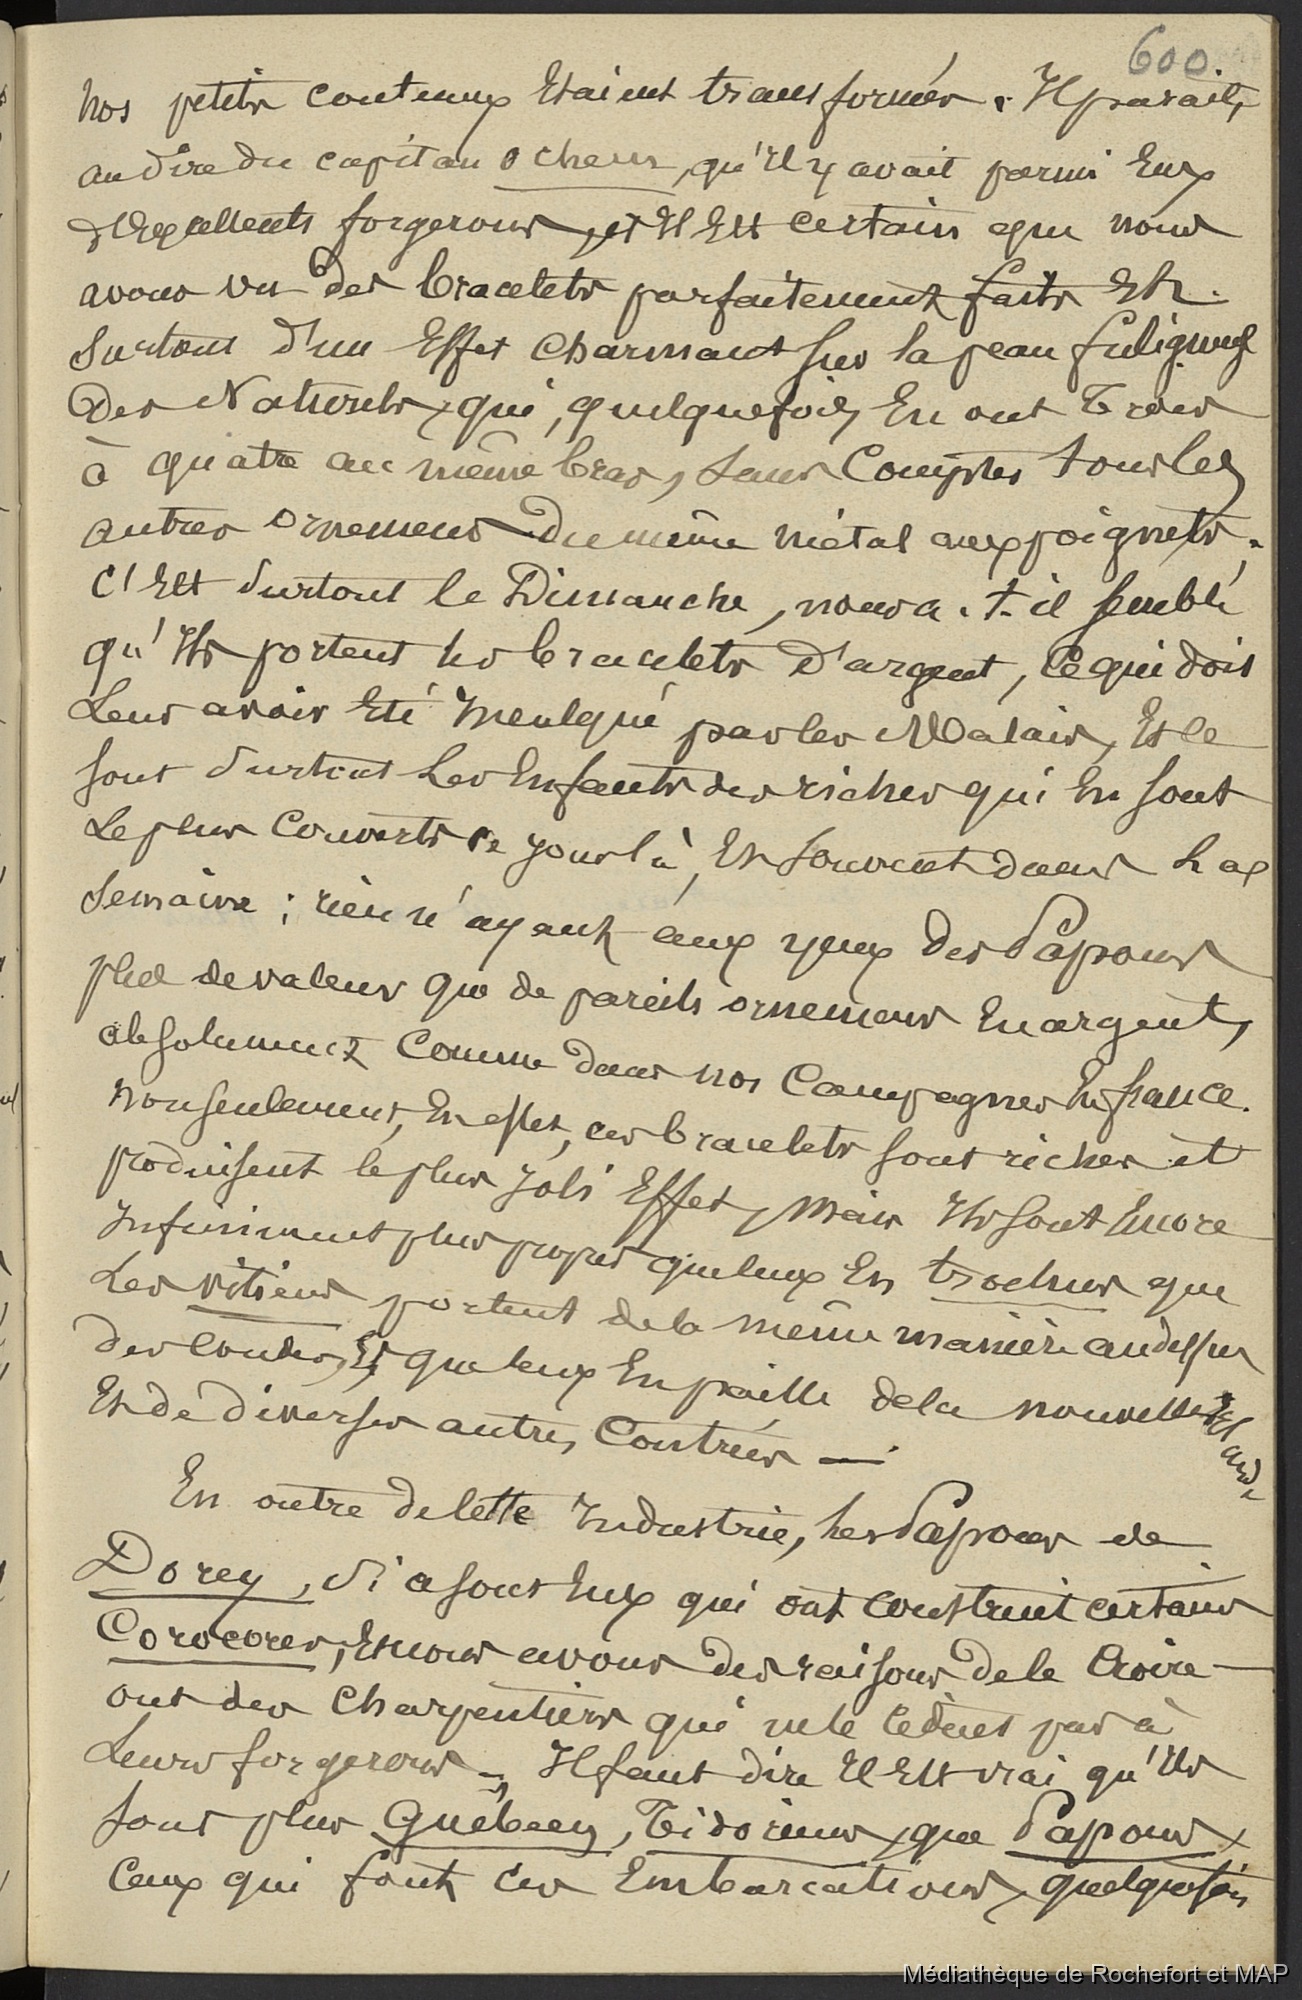 600
nos petits couteaux étaient transformés. Il parait,
au dire du capitan ocheur, qu'il y avait parmi Eux
d'Excellents forgerons, et Il Est certain que nous
avons vu des bracelets parfaitement faits Et
surtout d'un Effet charmant sur la peau fuligineuse
des Naturels, qui, quelquefois, En ont Trois
à quatre au même bras, sans Compter tous les
autres ornemens du même métal aux poignets.
C'Est surtout le Dimanche, nous a-t-il semblé
qu'Ils portent les bracelets d'argent, ce qui doit
Leur avoir Eté Inculqué par les Malais, Et ce
sont surtout Les Enfants des riches qui En sont
Le plus Couverts ce jour là, Et souvent dans La
semaine ; rien n'ayant aux yeux des Papous
plus de valeur que de pareils ornemens En argent,
absolument Comme dans nos Campagnes En france.
Non seulement, En effet, ces bracelets sont riches et
produisent le plus joli Effet, Mais Ils sont Encore
Infiniment plus propres que ceux En trochus que
Les vitiens portent de la même manière au dessus
des coudes, Et que ceux En paille de la nouvelle Irlande
Et de diverses autres Contrées —
En outre de cette Industrie, Les Papous de
Dorey, si ce sont Eux qui ont construit certains
Corocores, Et nous avons des raisons de le Croire —
ont des Charpentiers qui ne le cèdent pas à
Leurs forgerons —, Il faut dire Il Est vrai qu'Ils
sont plus Guébéens, Tidoriens, que Papous,
Ceux qui font ces Embarcations, quelquefois
Médiathèque de Rochefort et MAP